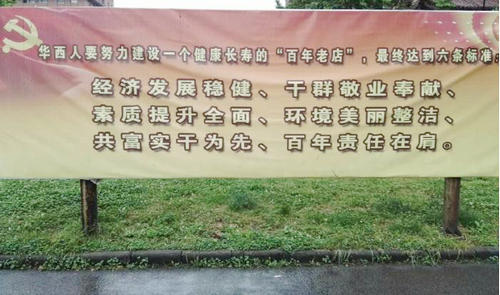 华西人要努力建设一个健康长寿的“百年老店”，最终达到六条标准：
经济发展稳健、干群敬业奉献、
素质提升全面、环境美丽整洁、
共富实干为先、百年责任在肩。